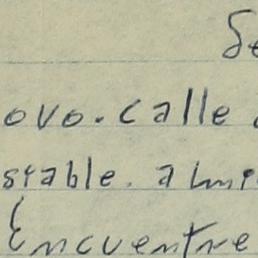 Se
ovo. calle
stable. almi
Encuentre